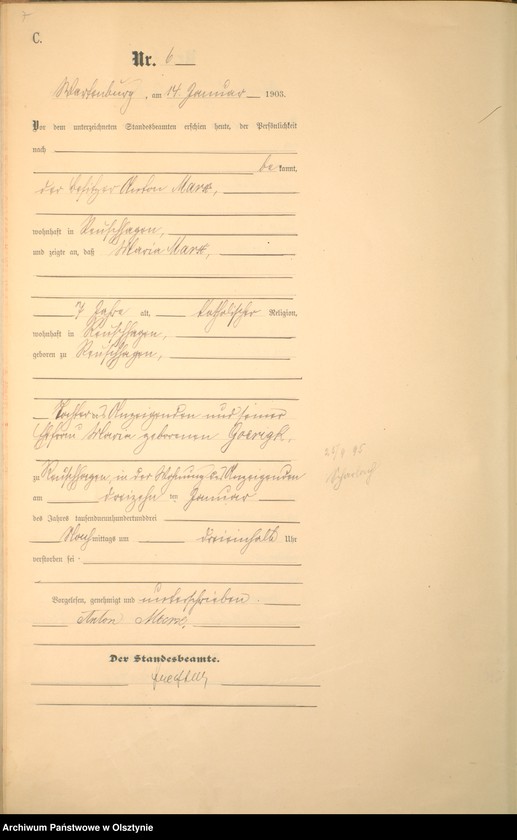 C.
Nr. 6
Wartenburg, am 14 Januar 1903.
Vor dem unterzeichneten Standesbeamten erschien heute, der Persönlichkeit
nach
bekannt,
der Besitzer Anton Marx,
wohnhaft in Reuschhagen,
und zeigte an, daß Maria Marx,
7 Jahre alt, katholischer Religion,
wohnhaft in Reuschhagen,
geboren zu Reuschhagen,
Tochter des Anzeigenden und seiner
Ehefrau Maria geborenen Goerigk.
zu Reuschhagen, in der Wohnung des Anzeigenden
am dreizehn ten Januar
des Jahres tausendneunhundertunddrei
Nachmittags um dreieinhalb Uhr
verstorben sei
Vorgelesen, genehmigt und unterschrieben.
Anton
Der Standesbeamte.
Archiwum Państwowe w Olsztynie